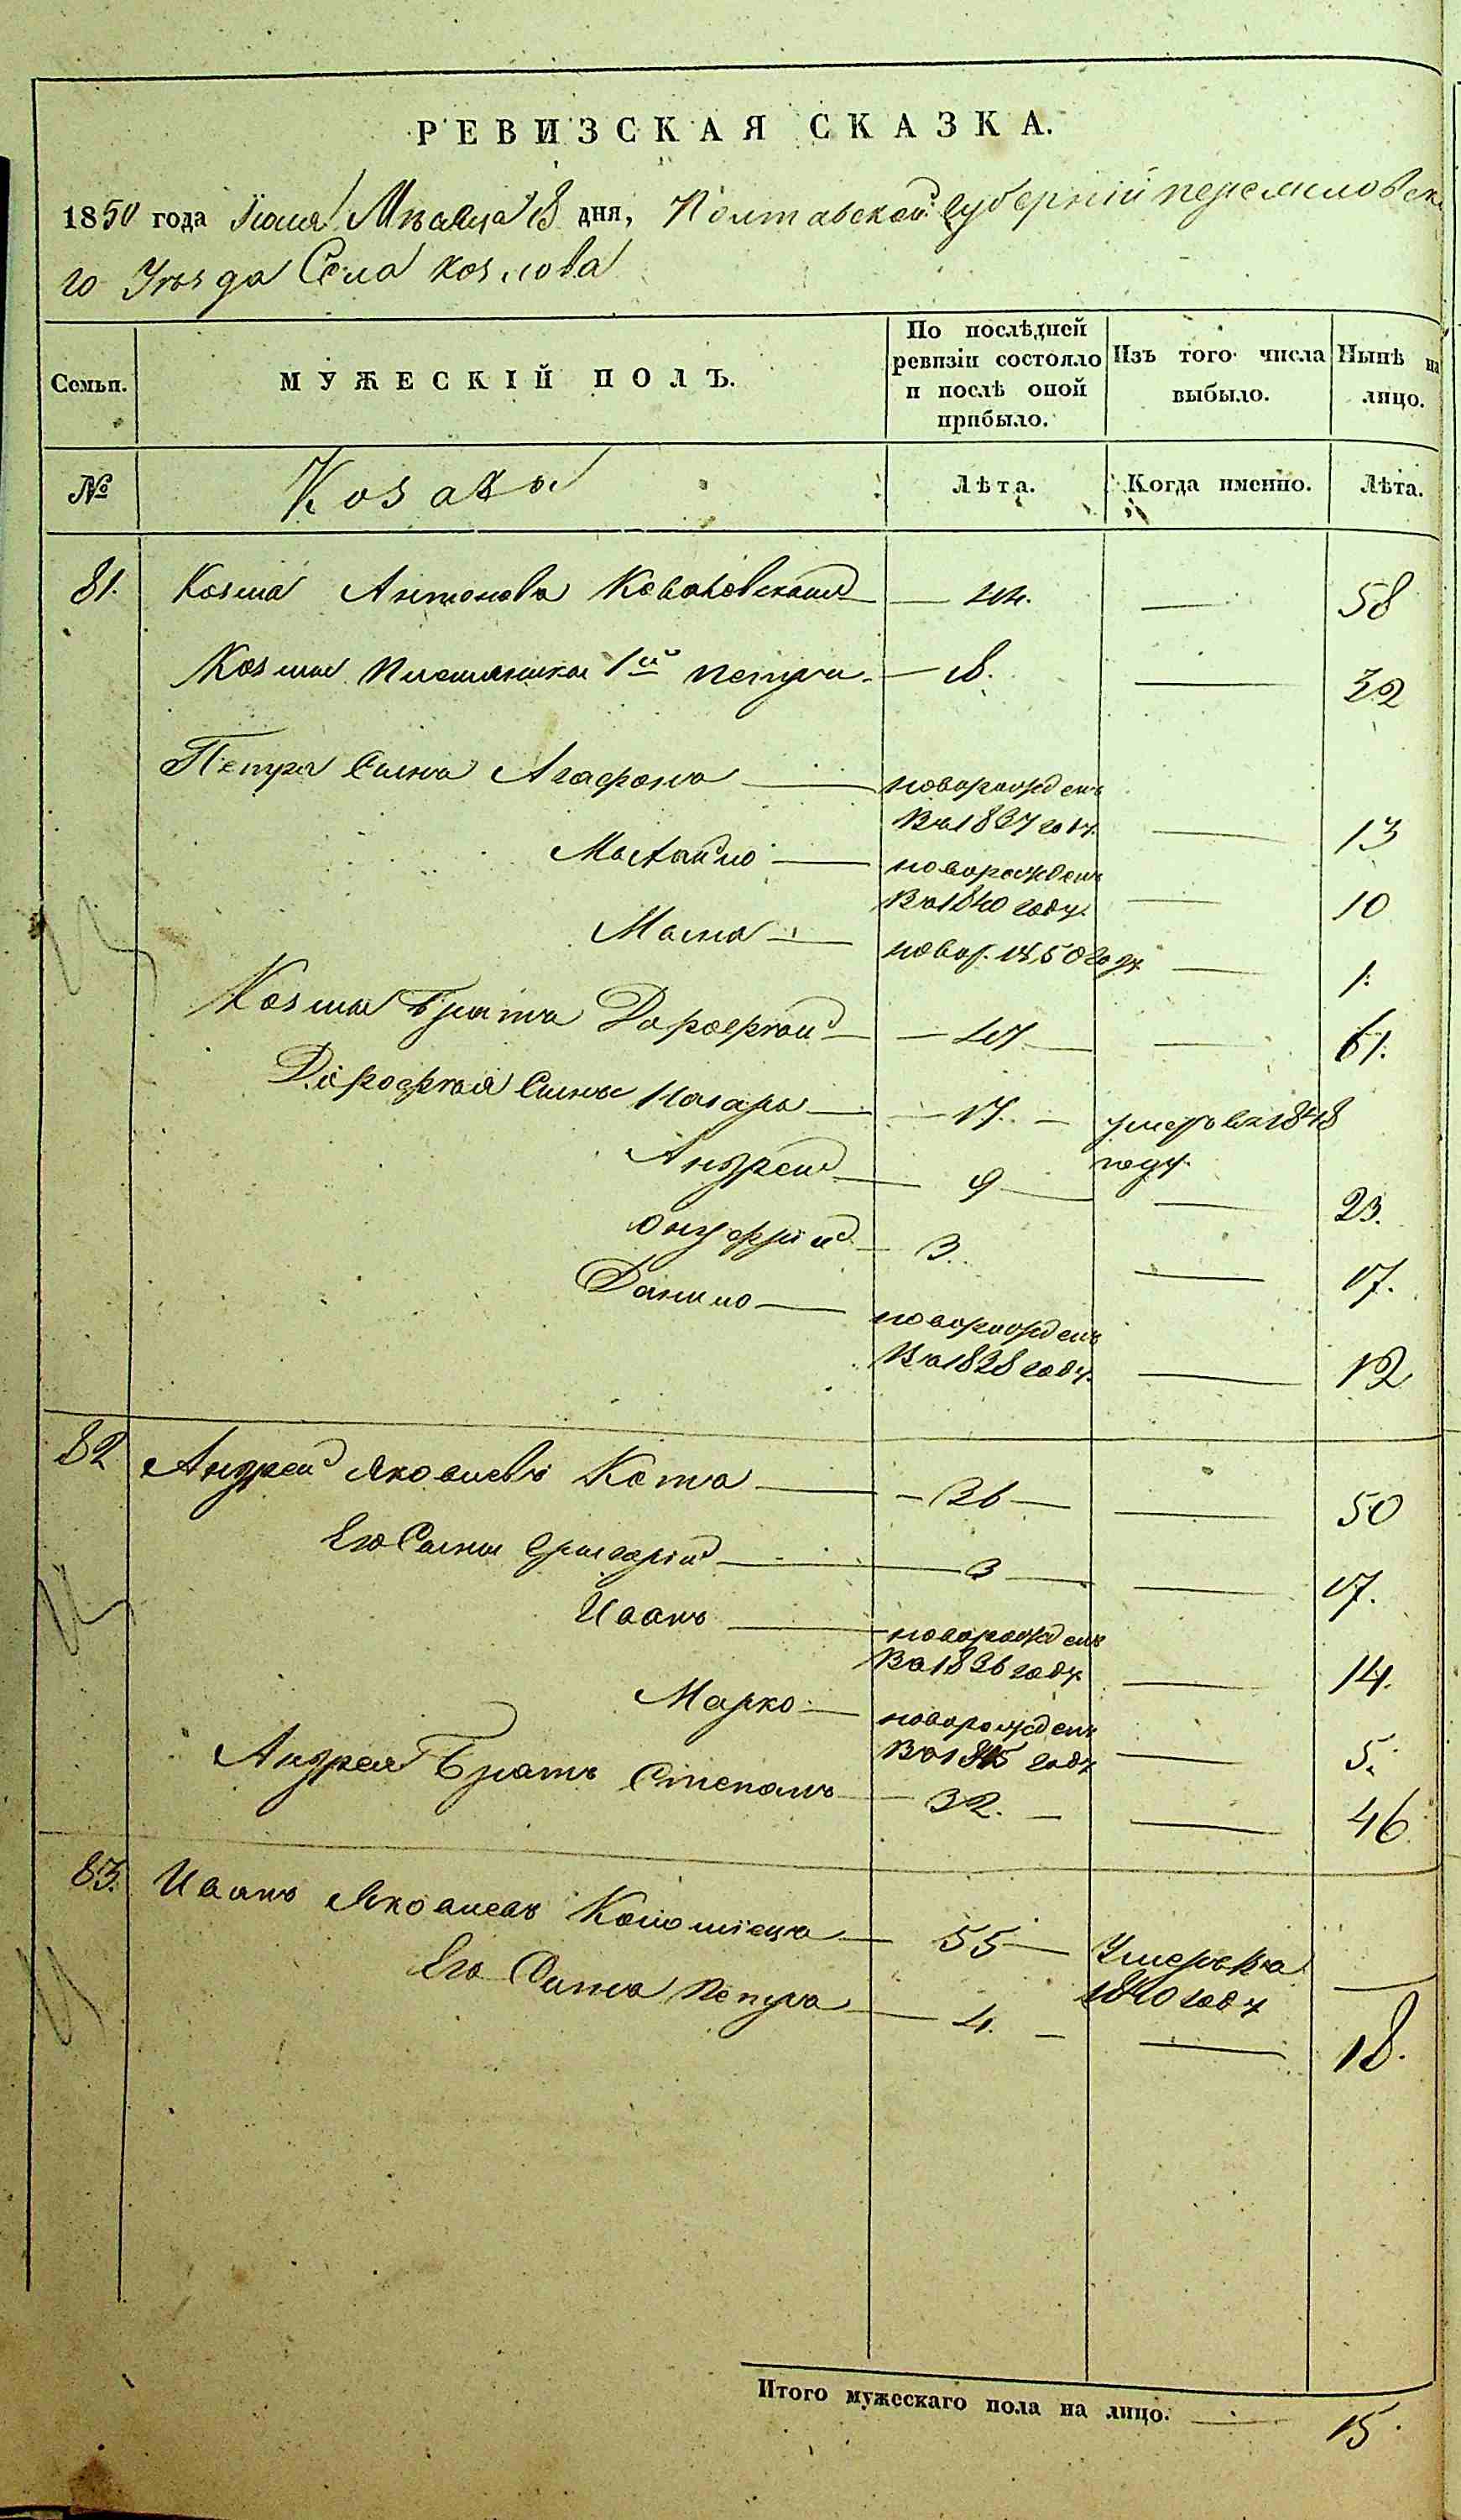 РЕВИЗСКАЯ СКАЗКА.
1850 года Мѣсяца 18 дня, Полтавской губерніи переясловска
го Уѣзда Села козлова
Семьи.
МУЖЕСКІЙ ПОЛЪ.
По послѣдней ревизіи состояло и послѣ оной прибыло.
Изъ того числа выбыло.
Нынѣ на лицо.
№
Козаки
Лѣта.
Когда именно.
Лѣта.
81. Козма Антоновъ — 44. — 58
Козмы племянникъ 1й петръ — 18. — 32
Петра Сынъ Агафонъ — новорожденъ
Въ 1837 году. — 13
Михайло — новорожденъ
Въ 1840 году. — 10
— новор. 1850 году — 1.
Козмы Братъ Дорофей — 47 — 61.
Дорофея Сыны Назаръ — 17. — умеръ въ 1848
году.
Андрей — 9 — 23.
Онуфрій — 3. — 17.
Данило — новорожденъ
Въ 1838 году. — 12
82 Андрей Яковлевъ Котъ — 36 — 50
Его Сыны Григорій — 3 — 17.
Иванъ — новорожденъ
Въ 1836 году — 14.
Марко — новорожденъ
Въ 1845 году — 5.
Андрея Братъ Степанъ — 32. — 46
83. Иванъ Яковлевъ Коломіецъ — 55 — Умеръ въ
1840 году —
Его Сынъ Петръ — 4. — 18.
Итого мужескаго пола на лицо. — 15